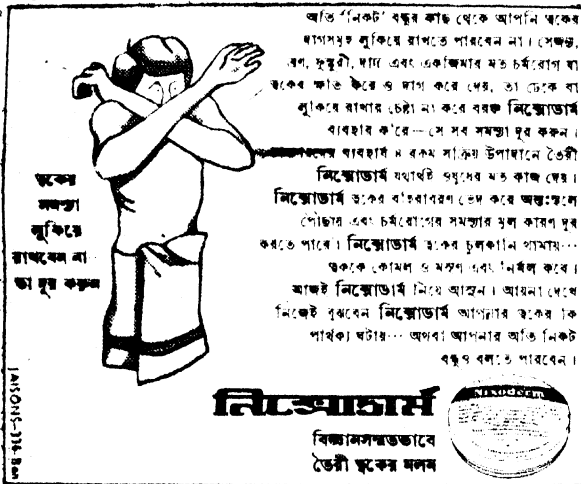 অতি "নিকট" বন্ধুর কাছ থেকে আপনি ত্বকের
দাগসমূহ লুকিয়ে রাখতে পারবেন না। সেজন্য,
ব্রণ, ফুস্কুরী, দাদ এবং একজিমার মত চর্মরোগ যা
ত্বকের ক্ষতি করে ও দাগ করে দেয়, তা ঢেকে বা
লুকিয়ে রাখার চেষ্টা না করে বরঞ্চ নিক্সোডার্ম
ব্যবহার ক'রে — সে সব সমস্যা দূর করুন।
ব্যবহার্য ৪ রকম সক্রিয় উপাদানে তৈরী
নিক্সোডার্ম যথার্থই ওষুধের মত কাজ দেয়।
নিক্সোডার্ম ত্বকের বহিরাবরণ ভেদ করে অন্তঃস্থলে
পৌছায় এবং চর্মরোগের সমস্যার মূল কারণ দূর
করতে পারে। নিক্সোডার্ম ত্বকের চুলকানি থামায়...
ত্বককে কোমল ও মসৃণ এবং নির্মল করে।
আজই নিক্সোডার্ম নিয়ে আসুন। আয়না দেখে
নিজেই বুঝবেন নিক্সোডার্ম আপনার ত্বকের কি
পার্থক্য ঘটায়... অথবা আপনার অতি নিকট
বন্ধুও বলতে পারবেন।
ত্বকের
সমস্যা
লুকিয়ে
রাখবেন না
তা দূর করুন
নিক্সোডার্ম
বিজ্ঞানসম্মতভাবে
তৈরী ত্বকের মলম
Nixoderm
JAISONS-374-Ban